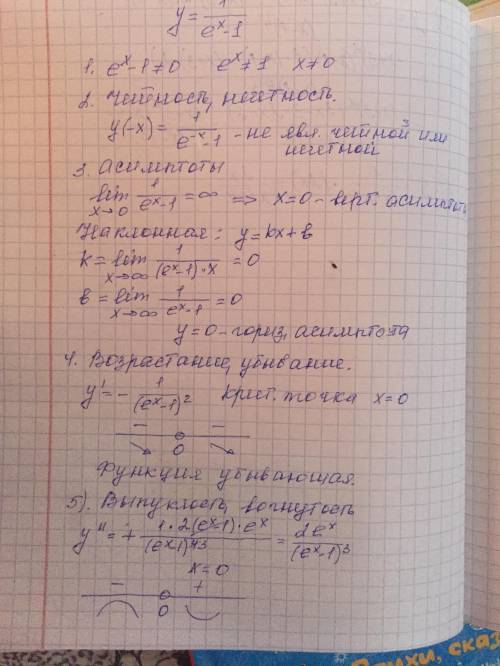 y = 1/(eˣ-1)
1. eˣ-1≠0 eˣ≠1 x≠0
2. Четность, нечетность.
y(-x) = 1/(e⁻ˣ-1) - не явл. четной или
нечетной
3. Асимптоты
lim x→0 1/(eˣ-1) = ∞ => x=0 - верт. асимптота
Наклонная: y=kx+b
k = lim x→∞ 1/((eˣ-1)·x) = 0
b = lim x→∞ 1/(eˣ-1) = 0
y=0 - гориз. асимптота
4. Возрастание, убывание.
y' = - 1/(eˣ-1)² Крит. точка x=0
- -
0
Функция убывающая.
5). Выпуклость, вогнутость
y'' = + 1·2(eˣ-1)·eˣ/(eˣ-1)⁴³ = 2eˣ/(eˣ-1)³
x=0
- +
0
ихи, сказ